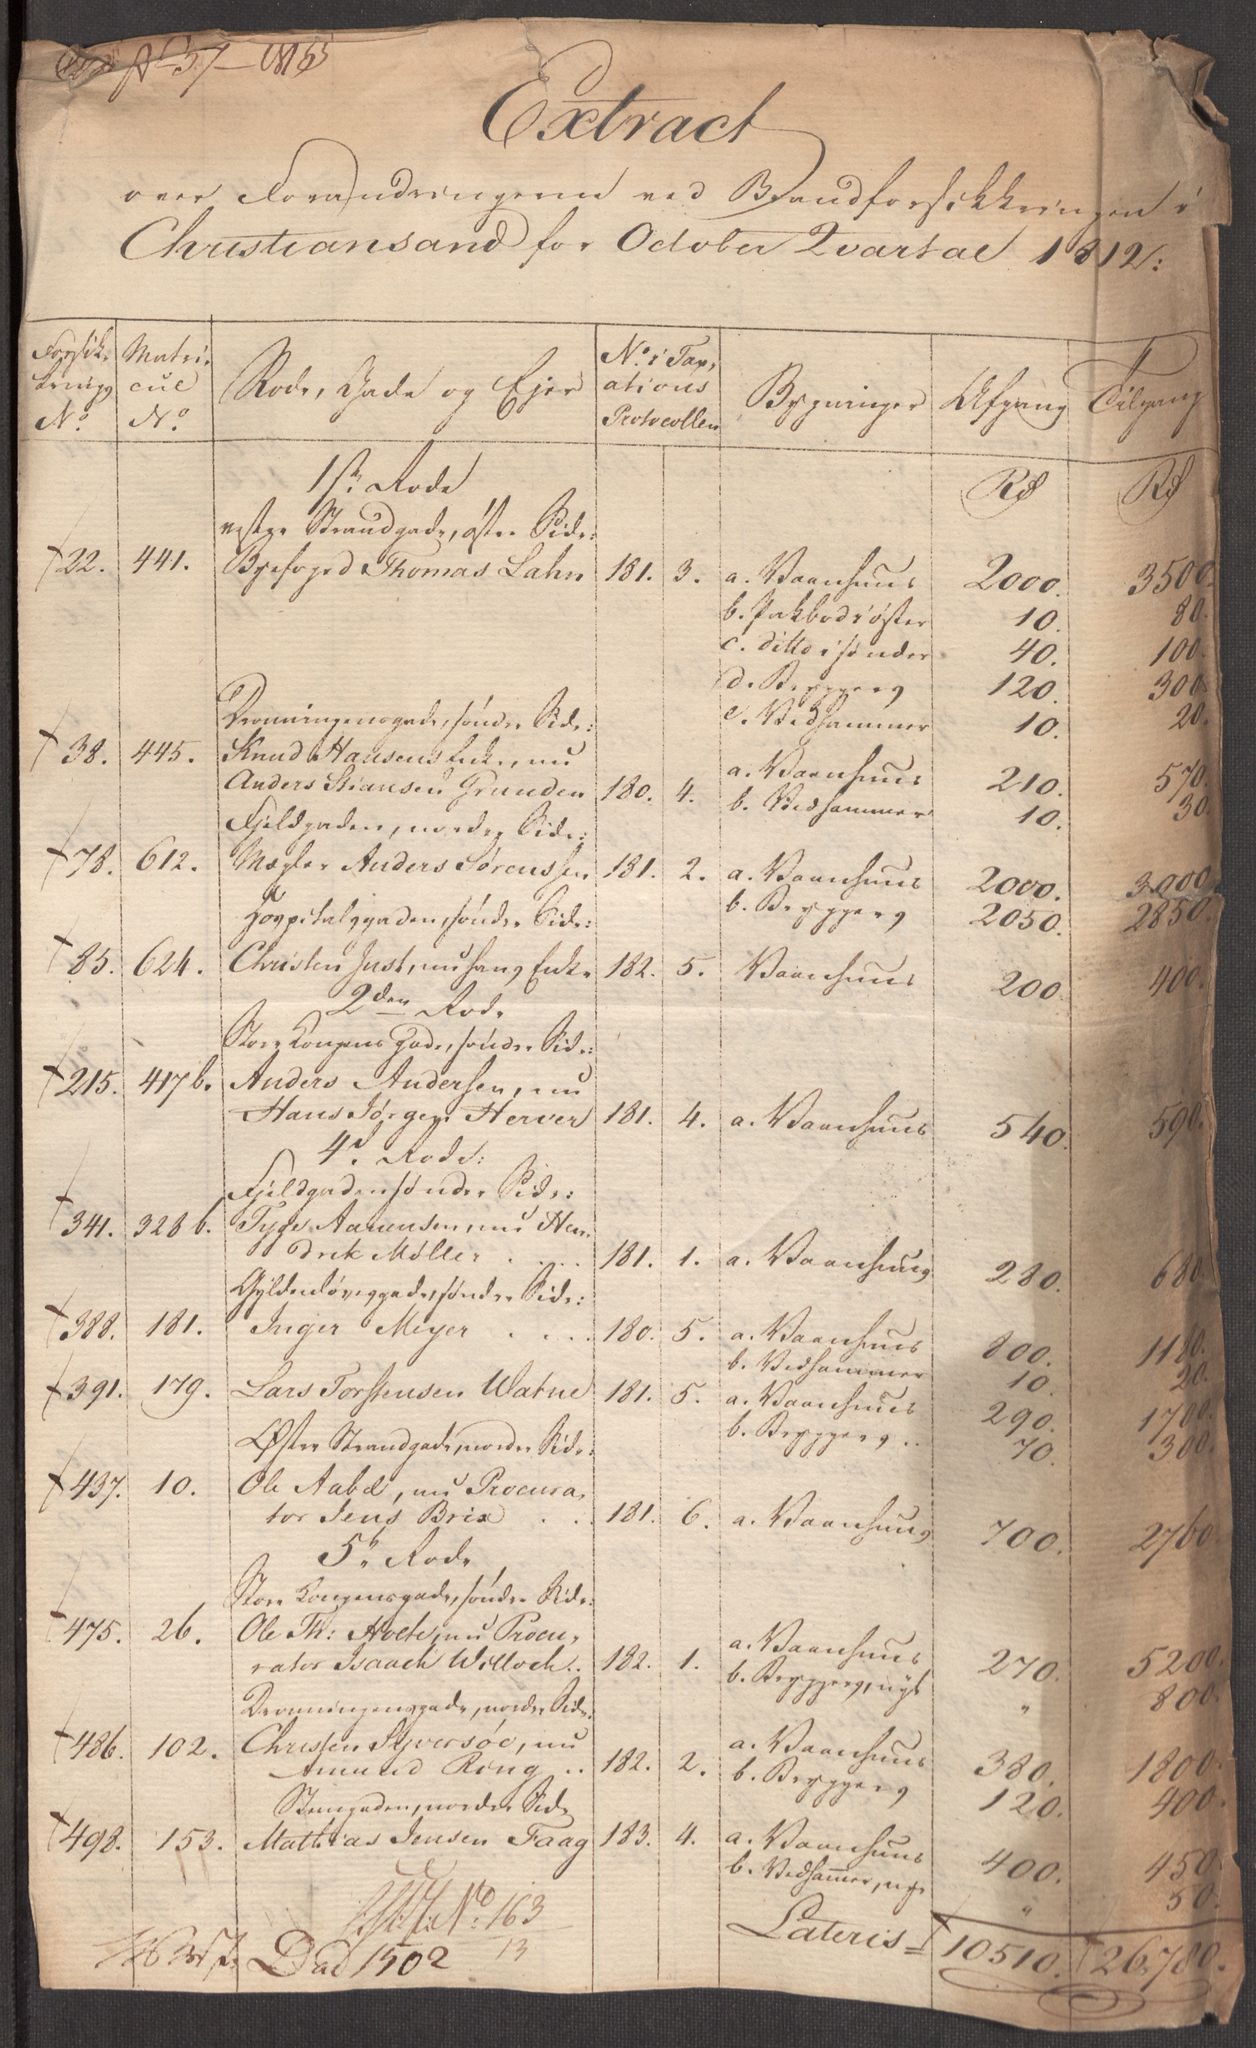 No 57 – 1813
Extract
over Forandringerne ved Brandforsikkringen i
Christiansand for October Qvartal 1812:
Forsik-
krings
No.
Matri-
cul
No.
Rode, Gade og Ejer
No. i Tax-
ations
Protocollen
Bygninger
Afgang
Tilgang
1ste Rode
Rd
Rd
vestre Strandgade, østre Side:
22. 441. Byefoged Thomas Lahn 181. 3. a. Vaanhuus 2000. 3500.
b. Pakbod i øster 10. 80.
c. ditto i sønder 40. 100.
d. Bryggers 120. 300.
Dronningensgade, søndre Side: e. Vedskammer 10. 20.
38. 445. Knud Hansens Enke, nu
Anders Stiansen Grunden 180. 4. a. Vaanhuus 210. 570.
b. Vedskammer 10. 30.
Fjeldgaden, nordre Side:
78. 612. Mægler Anders Sørenssen 181. 2. a. Vaanhuus 2000. 3000.
b. Bryggers 2050. 2850.
Hospitalsgaden, søndre Side:
85. 624. Christen Just, nu hans Enke 182. 5. Vaanhuus 200. 400.
2den Rode
Store Kongens Gade, søndre Side:
215. 417 b. Anders Andersen, nu
Hans Jørgen Herver 181. 4. a. Vaanhuus 540. 590.
4de Rode:
Fjeldgaden søndre Side:
341. 328 b. Tyge Aanensen, nu Hen-
drik Møller . . . . 181. 1. a. Vaanhuus 280. 680.
Gyldenløvesgade, søndre Side:
388. 181. Inger Meyer . . . . 180. 5. a. Vaanhuus 800. 1180.
b. Vedskammer 10. 20.
391. 179. Lars Torstensen Watne 181. 5. a. Vaanhuus 290. 1700.
b. Bryggers .. 70. 300.
Østre Strandgade, nordre Side:
437. 10. Ole Aabel, nu Procura-
tor Jens Brix . . . 181. 6. a. Vaanhuus 700. 2760.
5te Rode
Store Kongensgade, søndre Side:
475. 26. Ole Th: Holte, nu Procu-
rator Isaach Willoch.. 182. 1. a. Vaanhuus 270. 5200.
b. Bryggers, nyt " 800.
Dronningensgade, nordre Side:
486. 102. Christen Syversøe, nu
Amund Ring .. 182. 2. a. Vaanhuus 380. 1800.
b. Bryggers 120. 400.
Steengaden, nordre Side
498. 153. Mathias Jensen Faag 183. 4. a. Vaanhuus 400. 450.
b. Vedskammer, nye " 50.
No: 163
13
Lateris = 10510. 26,780.
Dad 1502